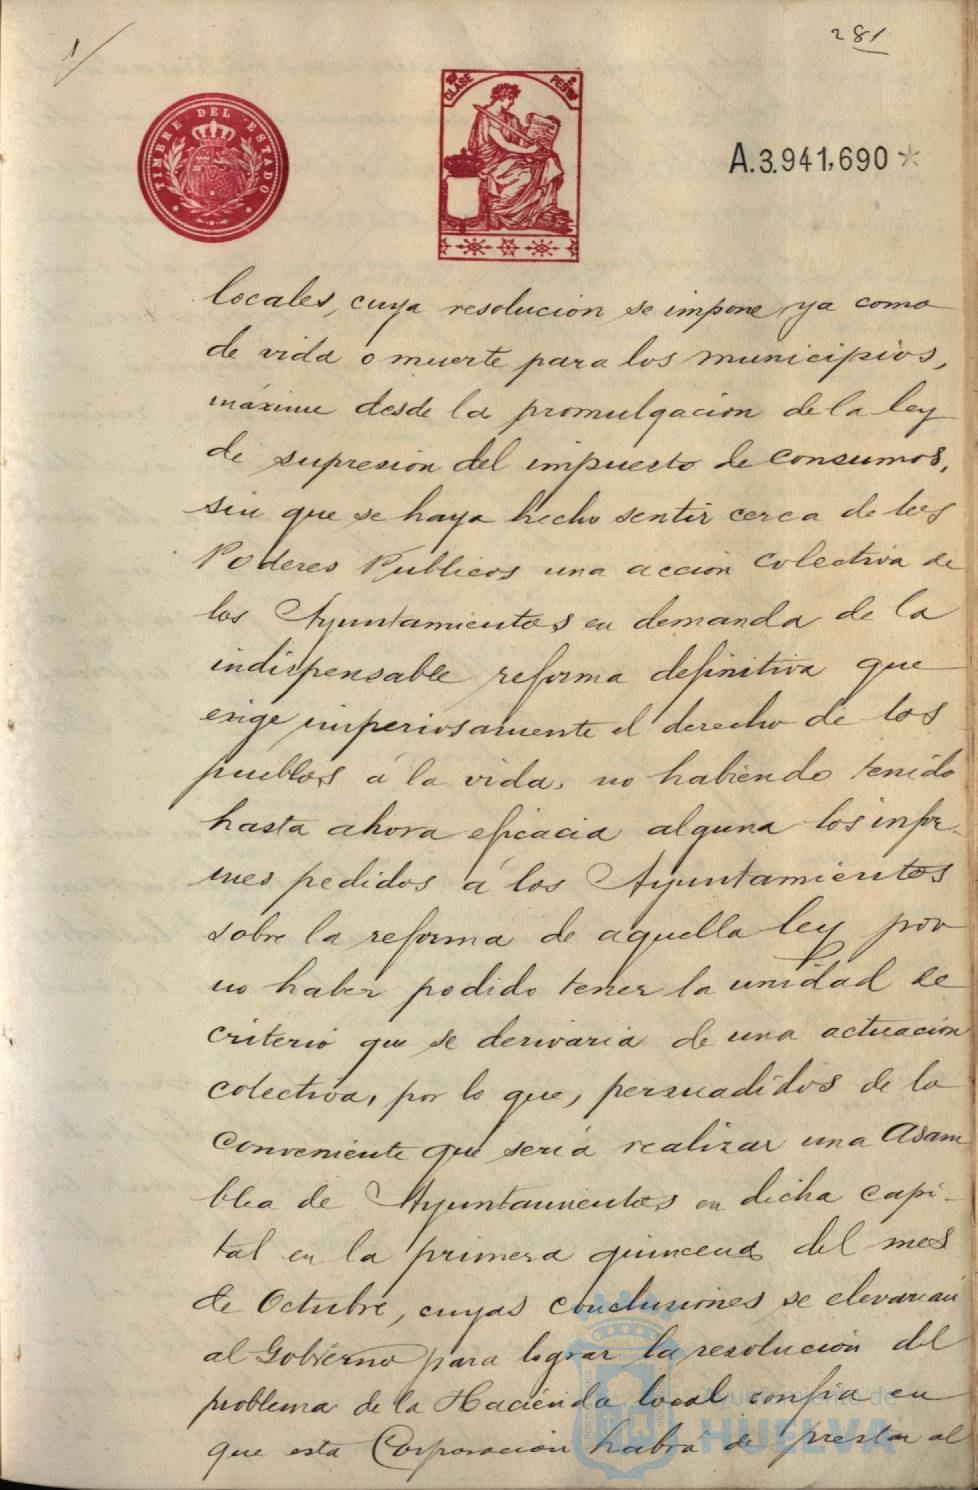 1/
281
TIMBRE DEL ESTADO
10ª CLASE
2 PESETAS
A.3.941,690 *
locales, cuya resolución se impone ya como
de vida o muerte para los municipios,
máxime desde la promulgación de la ley
de supresión del impuesto de consumos,
sin que se haya hecho sentir cerca de los
Poderes Públicos una acción colectiva de
los Ayuntamientos en demanda de la
indispensable reforma definitiva que
exige imperiosamente el derecho de los
pueblos á la vida, no habiendo tenido
hasta ahora eficacia alguna los infor-
mes pedidos á los Ayuntamientos
sobre la reforma de aquella ley por
no haber podido tener la unidad de
criterio que se derivaría de una actuación
colectiva, por lo que, persuadidos de lo
conveniente que sería realizar una Asam
blea de Ayuntamientos en dicha capi-
tal en la primera quincena del mes
de Octubre, cuyas conclusiones se elevarían
al Gobierno para lograr la resolución del
problema de la Hacienda local confia en
que esta Corporación habrá de prestar al
Ayuntamiento de
HUELVA